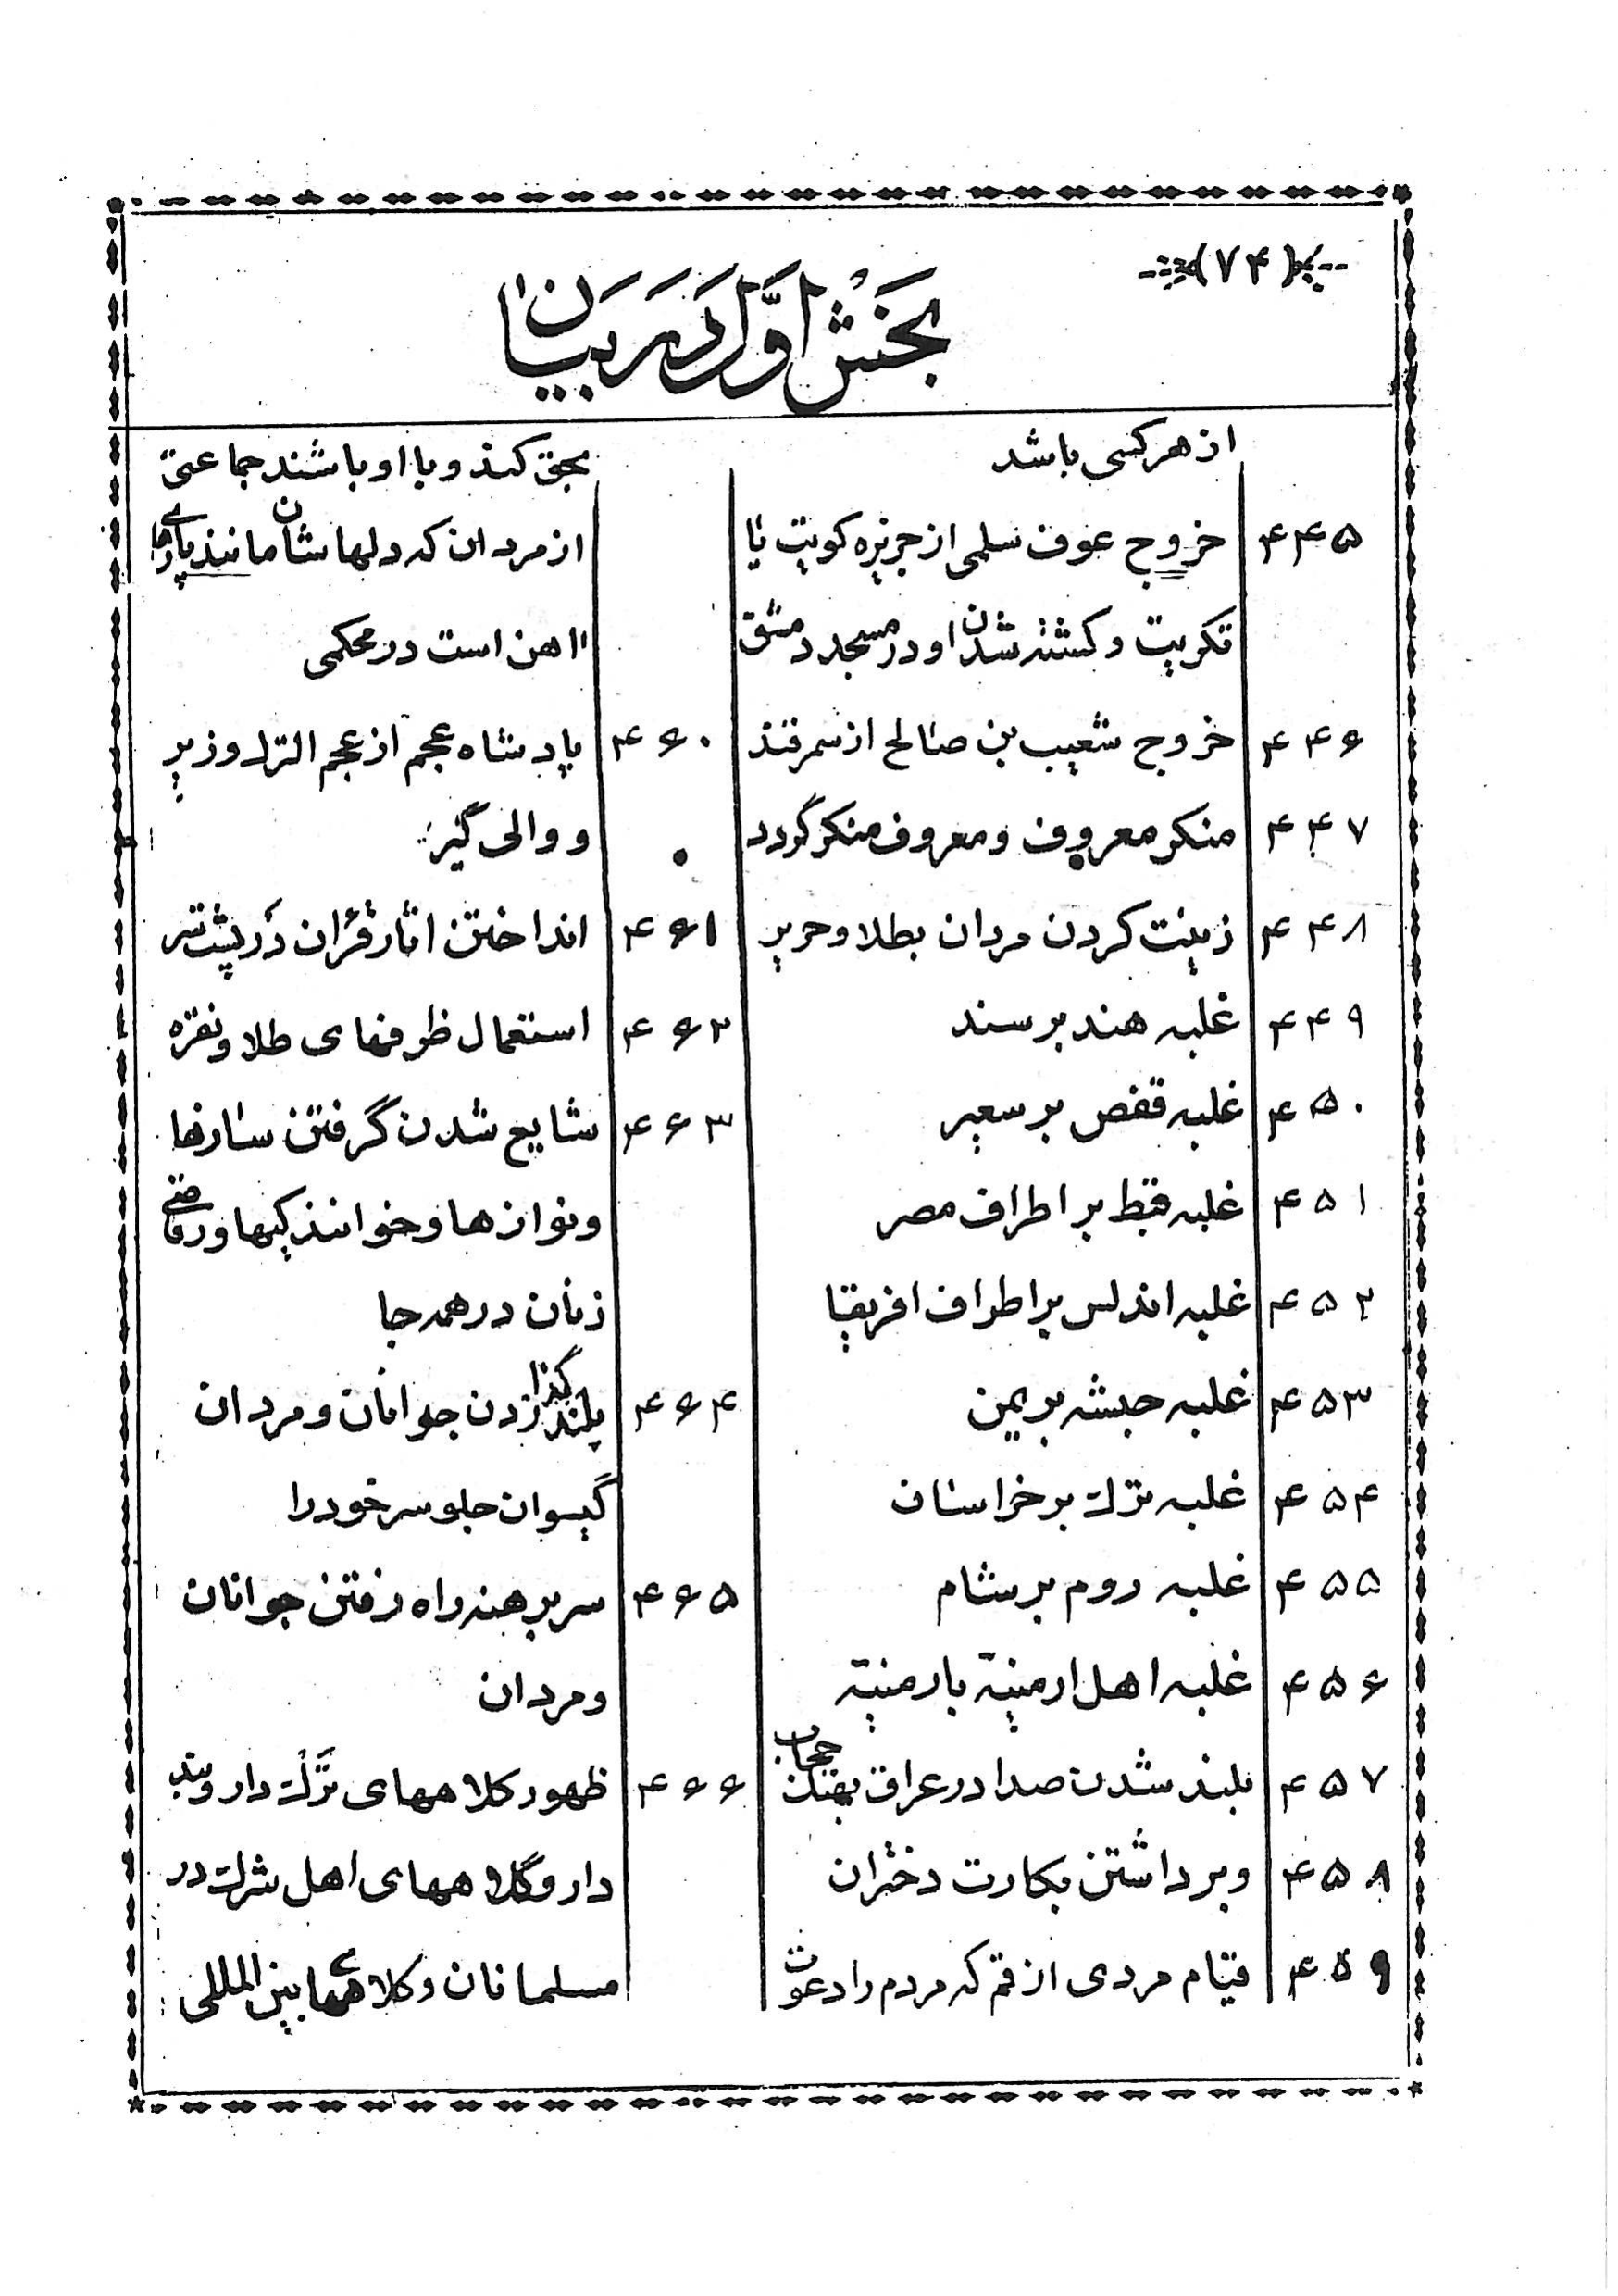 (۷۴)
بخش اول در بیان
از هر کسی باشد
۴۴۵ خروج عوف سلمی از جزیره کویت یا
تکریت و کشته شدن او در مسجد دمشق
۴۴۶ خروج شعیب بن صالح از سمرقند
۴۴۷ منکر معروف و معروف منکر گردد
۴۴۸ زینت کردن مردان بطلا و حریر
۴۴۹ غلبه هند بر سند
۴۵۰ غلبه قفص بر سعیر
۴۵۱ غلبه قبط بر اطراف مصر
۴۵۲ غلبه اندلس بر اطراف افریقیا
۴۵۳ غلبه حبشه بر یمن
۴۵۴ غلبه ترک بر خراسان
۴۵۵ غلبه روم بر شام
۴۵۶ غلبه اهل ارمنیة بارمنیة
۴۵۷ بلند شدن صدا در عراق بهتک حجاب
۴۵۸ و برداشتن بکارت دختران
۴۵۹ قیام مردی از قم که مردم را دعوت
بحق کند و با او باشند جماعتی
از مردان که دلهاشان مانند پارهای
اهن است در محکمی
۴۶۰ پادشاه عجم از عجم الترک وزیر
و والی گیرد
۴۶۱ انداختن اثار قران در پشت سر
۴۶۲ استعمال ظرفهای طلا و نقره
۴۶۳ شایع شدن گرفتن سازها
و نوازها و خوانندگیها و رقاصی
زنان در همه جا
۴۶۴ بلند گذاردن جوانان و مردان
گیسوان جلو سر خود را
۴۶۵ سر برهنه راه رفتن جوانان
و مردان
۴۶۶ ظهور کلاههای ترک دار و بند
دار و کلاههای اهل شرک در
مسلمانان و کلاههای بین المللی